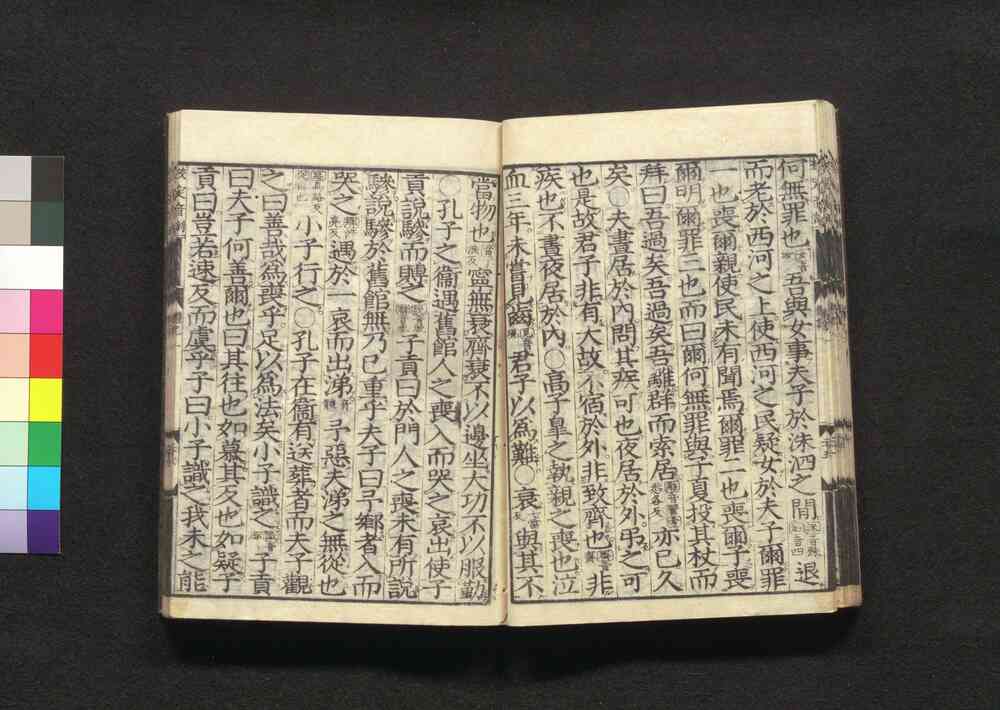 何無罪也吾與女事夫子於洙泗之間洙音殊泗音四退
而老於西河之上使西河之民疑女於夫子爾罪
一也喪爾親使民未有聞焉爾罪二也喪爾子喪
爾明爾罪三也而曰爾何無罪與子夏投其杖而
拜曰吾過矣吾過矣吾離群而索居亦已久
矣○夫晝居於內問其疾可也夜居於外弔之可
也是故君子非有大故不宿於外非致齊也非
疾也不晝夜居於內○高子皐之執親之喪也泣
血三年未嘗見齒君子以為難○衰與其不
當物也寧無衰齊衰不以邊坐大功不以服勤
○孔子之衞遇舊館人之喪入而哭之哀出使子
貢說驂而賻之子貢曰於門人之喪未有所說
驂說驂於舊館無乃已重乎夫子曰予鄉者入而
哭之遇於一哀而出涕予惡夫涕之無從也
小子行之○孔子在衞有送葬者而夫子觀
之曰善哉爲喪乎足以爲法矣小子識之子貢
曰夫子何善爾也曰其往也如慕其反也如疑子
貢曰豈若速反而虞乎子曰小子識之我未之能